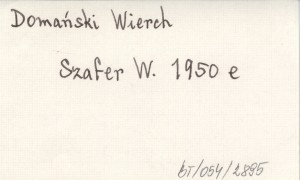 Domański Wierch
Szafer W. 1950 e
bT/054/2895